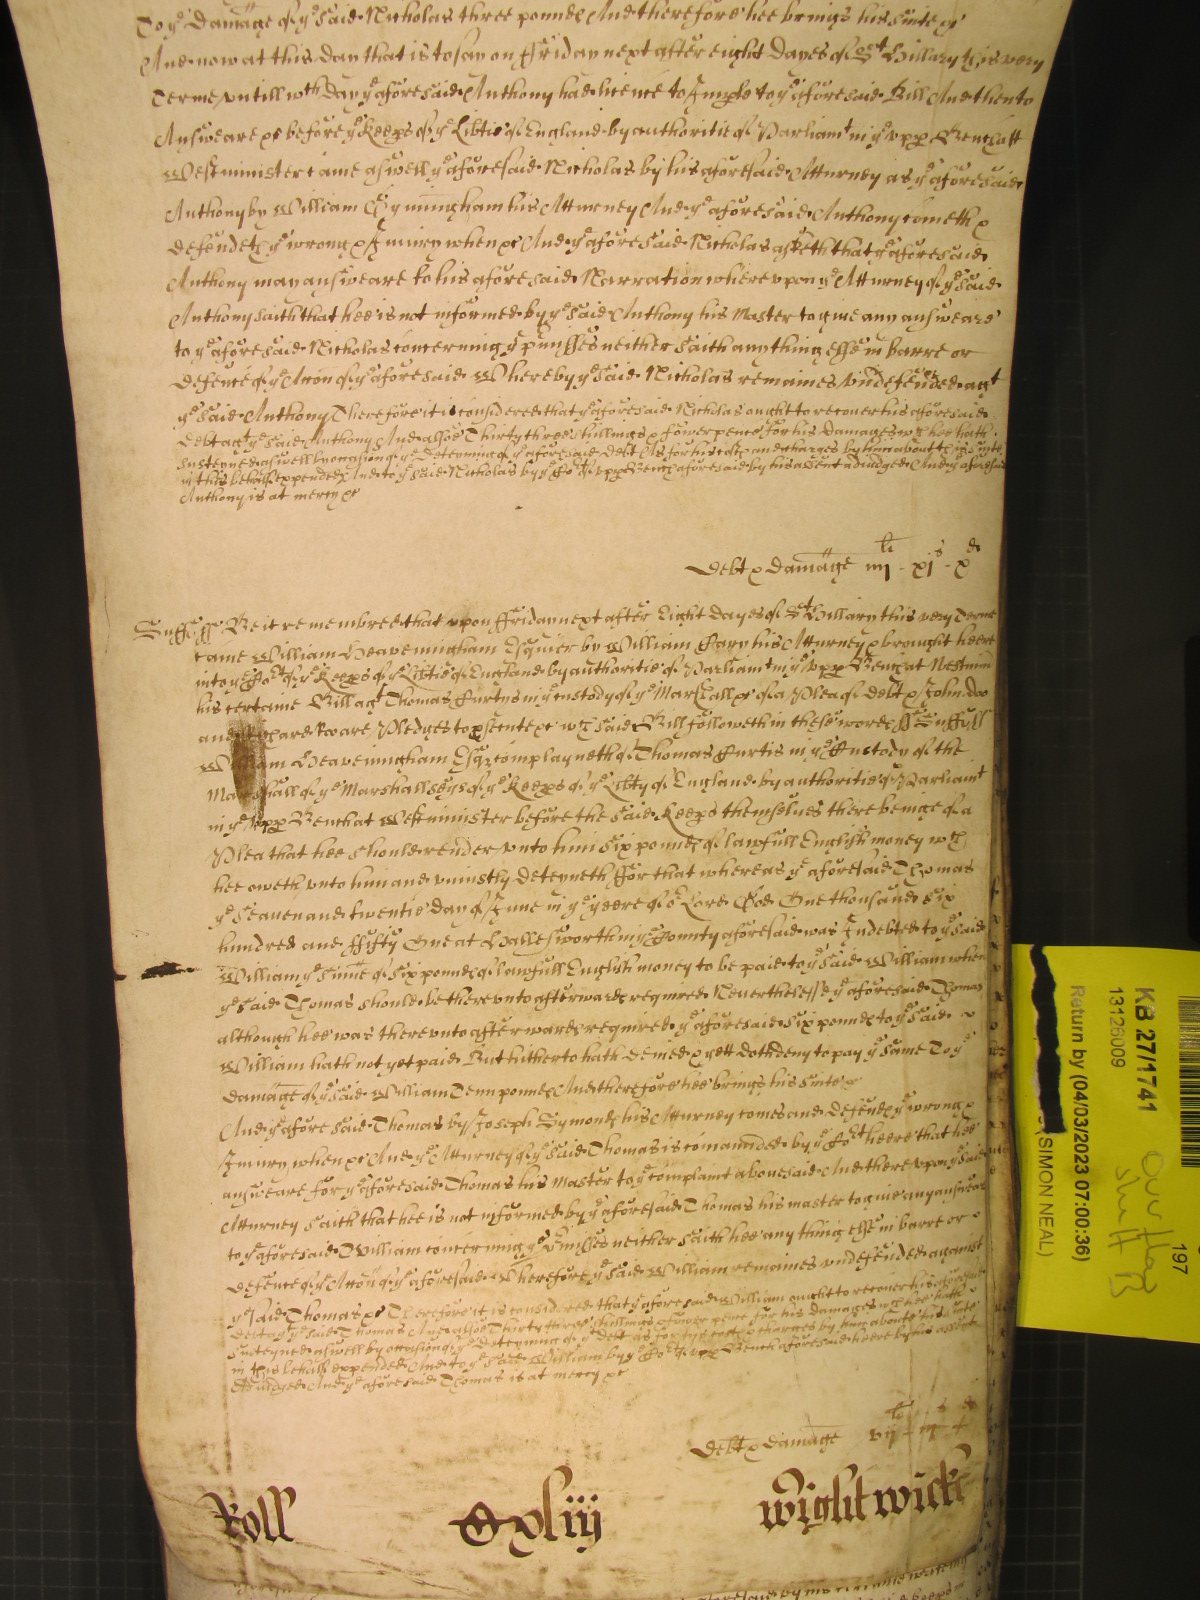 To yᵉ Damage of yᵉ said Nicholas three pounds And therefore hee brings his suite &c
And now at this Day that is to say on ffriday next after eight Dayes of Sᵗ Hillary this very
Terme untill wᶜʰ Day yᵉ aforesaid Anthony had licence to Imple to yᵉ aforesaid Bill And then to
Answeare &c before yᵉ Keeps of yᵉ Libtie of England by authoritie of Parliamᵗ in yᵉ upp Bench att
Westminister came aswell yᵉ aforesaid Nicholas by his aforesaid Atturney as yᵉ aforesaid
Anthony by William his Atturney And yᵉ aforesaid Anthony cometh &
defendeth yᵉ wrong & Iniury when &c And yᵉ aforesaid Nicholas asketh that yᵉ aforesaid
Anthony may answeare to his aforesaid Narration whereupon yᵉ Atturney of yᵉ said
Anthony saith that hee is not informed by yᵉ said Anthony his Master to give any answeare
to yᵉ aforesaid Nicholas concerning yᵉ pmisses neither saith any thing else in barre or
defence of yᵉ Accon of yᵉ aforesaid Whereby yᵉ said Nicholas remaines undefended agᵗ
yᵉ said Anthony Therefore it is considered that yᵉ aforesaid Nicholas ought to recover his aforesaid
Debt agᵗ yᵉ said Anthony And alsoe Thirty three shillings & fower pence for his Damages wᶜʰ hee hath
susteyned aswell by occasion of yᵉ Deteyning of yᵉ aforesaid debt As for his costs and charges by him about this suite
in this behalfe expended And to yᵉ said Nicholas by yᵉ Coᵗ of upp Bench aforesaid by his assent adiudged And yᵉ aforesaid
Anthony is at mercy &c
Debt & Damage iiijˡⁱ - xjˢ - xᵈ
Suff ss Be it remembred that upon ffriday next after Eight Dayes of Sᵗ Hillary this very Terme
came William Heaveningham Esquier by William Cary his Atturney & brought heere
into yᵉ Coᵗ of yᵉ Keeps of yᵉ Libtie of England by authoritie of Parliamᵗ in yᵉ upp Bench at Westmin
his certaine Bill agᵗ Thomas Curtys in yᵉ custody of yᵉ Marshall &c of a Plea of Debt & John Doo
and Richard Rooe are Pledges to psecute &c wᶜʰ said Bill followeth in these words ss Suffoll
William Heaveningham Esqr complayneth of Thomas Curtis in yᵉ Custody of the
Marshall of yᵉ Marshallseys of yᵉ Keeps of yᵉ Libty of England by authoritie of Parliamᵗ
in yᵉ upp Bench at Westminister before the said Keeps themselves there beinge of a
Plea that hee should render unto him six pounds of lawfull English money wᶜʰ
hee oweth unto him and uniustly deteyneth ffor that whereas yᵉ aforesaid Thomas
yᵉ Seaven and twentie day of June in yᵉ yeere of oʳ Lord God One thousand six
hundred and ffifty One at Hallesworth in yᵉ County aforesaid was Indebted to yᵉ said
William yᵉ sume of six pounds of lawfull English money to be paid to yᵉ said William when
yᵉ said Thomas should be thereunto afterwards required Neverthelesse yᵉ aforesaid Thomas
although hee was thereunto afterwards required yᵉ aforesaid six pounds to yᵉ said
William hath not yet paid But hitherto hath denied & yett doth deny to pay yᵉ same To yᵉ
damage of yᵉ said William Tenn pounds And therefore hee brings his suite &c
And yᵉ aforesaid Thomas by Joseph Symonds his Atturney comes and defends yᵉ wrong &
Iniury when &c And yᵉ Atturney of yᵉ said Thomas is comaunded by yᵉ Coᵗ heere that hee
answeare for yᵉ aforesaid Thomas his Master to yᵉ complaint abovesaid And thereupon yᵉ said
Atturney saith that hee is not informed by yᵉ aforesaid Thomas his master to give any answeare
to yᵉ aforesaid William concerning yᵉ pmisses neither saith hee any thing else in barre or
defence of yᵉ Accon of yᵉ aforesaid Wherefore yᵉ said William remaines undefended against
yᵉ said Thomas &c Therefore it is considered that yᵉ aforesaid William ought to recover his aforesaid
debt agᵗ yᵉ said Thomas And alsoe Thirty three shillings & fower pence for his damages wᶜʰ hee hath
susteyned aswell by occasion of yᵉ deteyning of yᵉ debt as for his costs & charges by him about his suite
in this behalfe expended And to yᵉ said William by yᵉ Coᵗ of upp Bench aforesaid heere by his assent
Adiudged And yᵉ aforesaid Thomas is at mercy &c
Debt & Damage vijˡⁱ
Roll Cxliij Wightwicke
KB 27/1741
13126009
Return by (04/03/2023 07:00:36)
(SIMON NEAL)
197